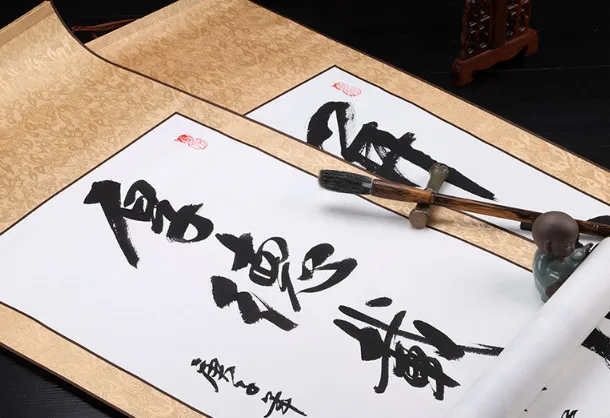 厚德載
庚子年